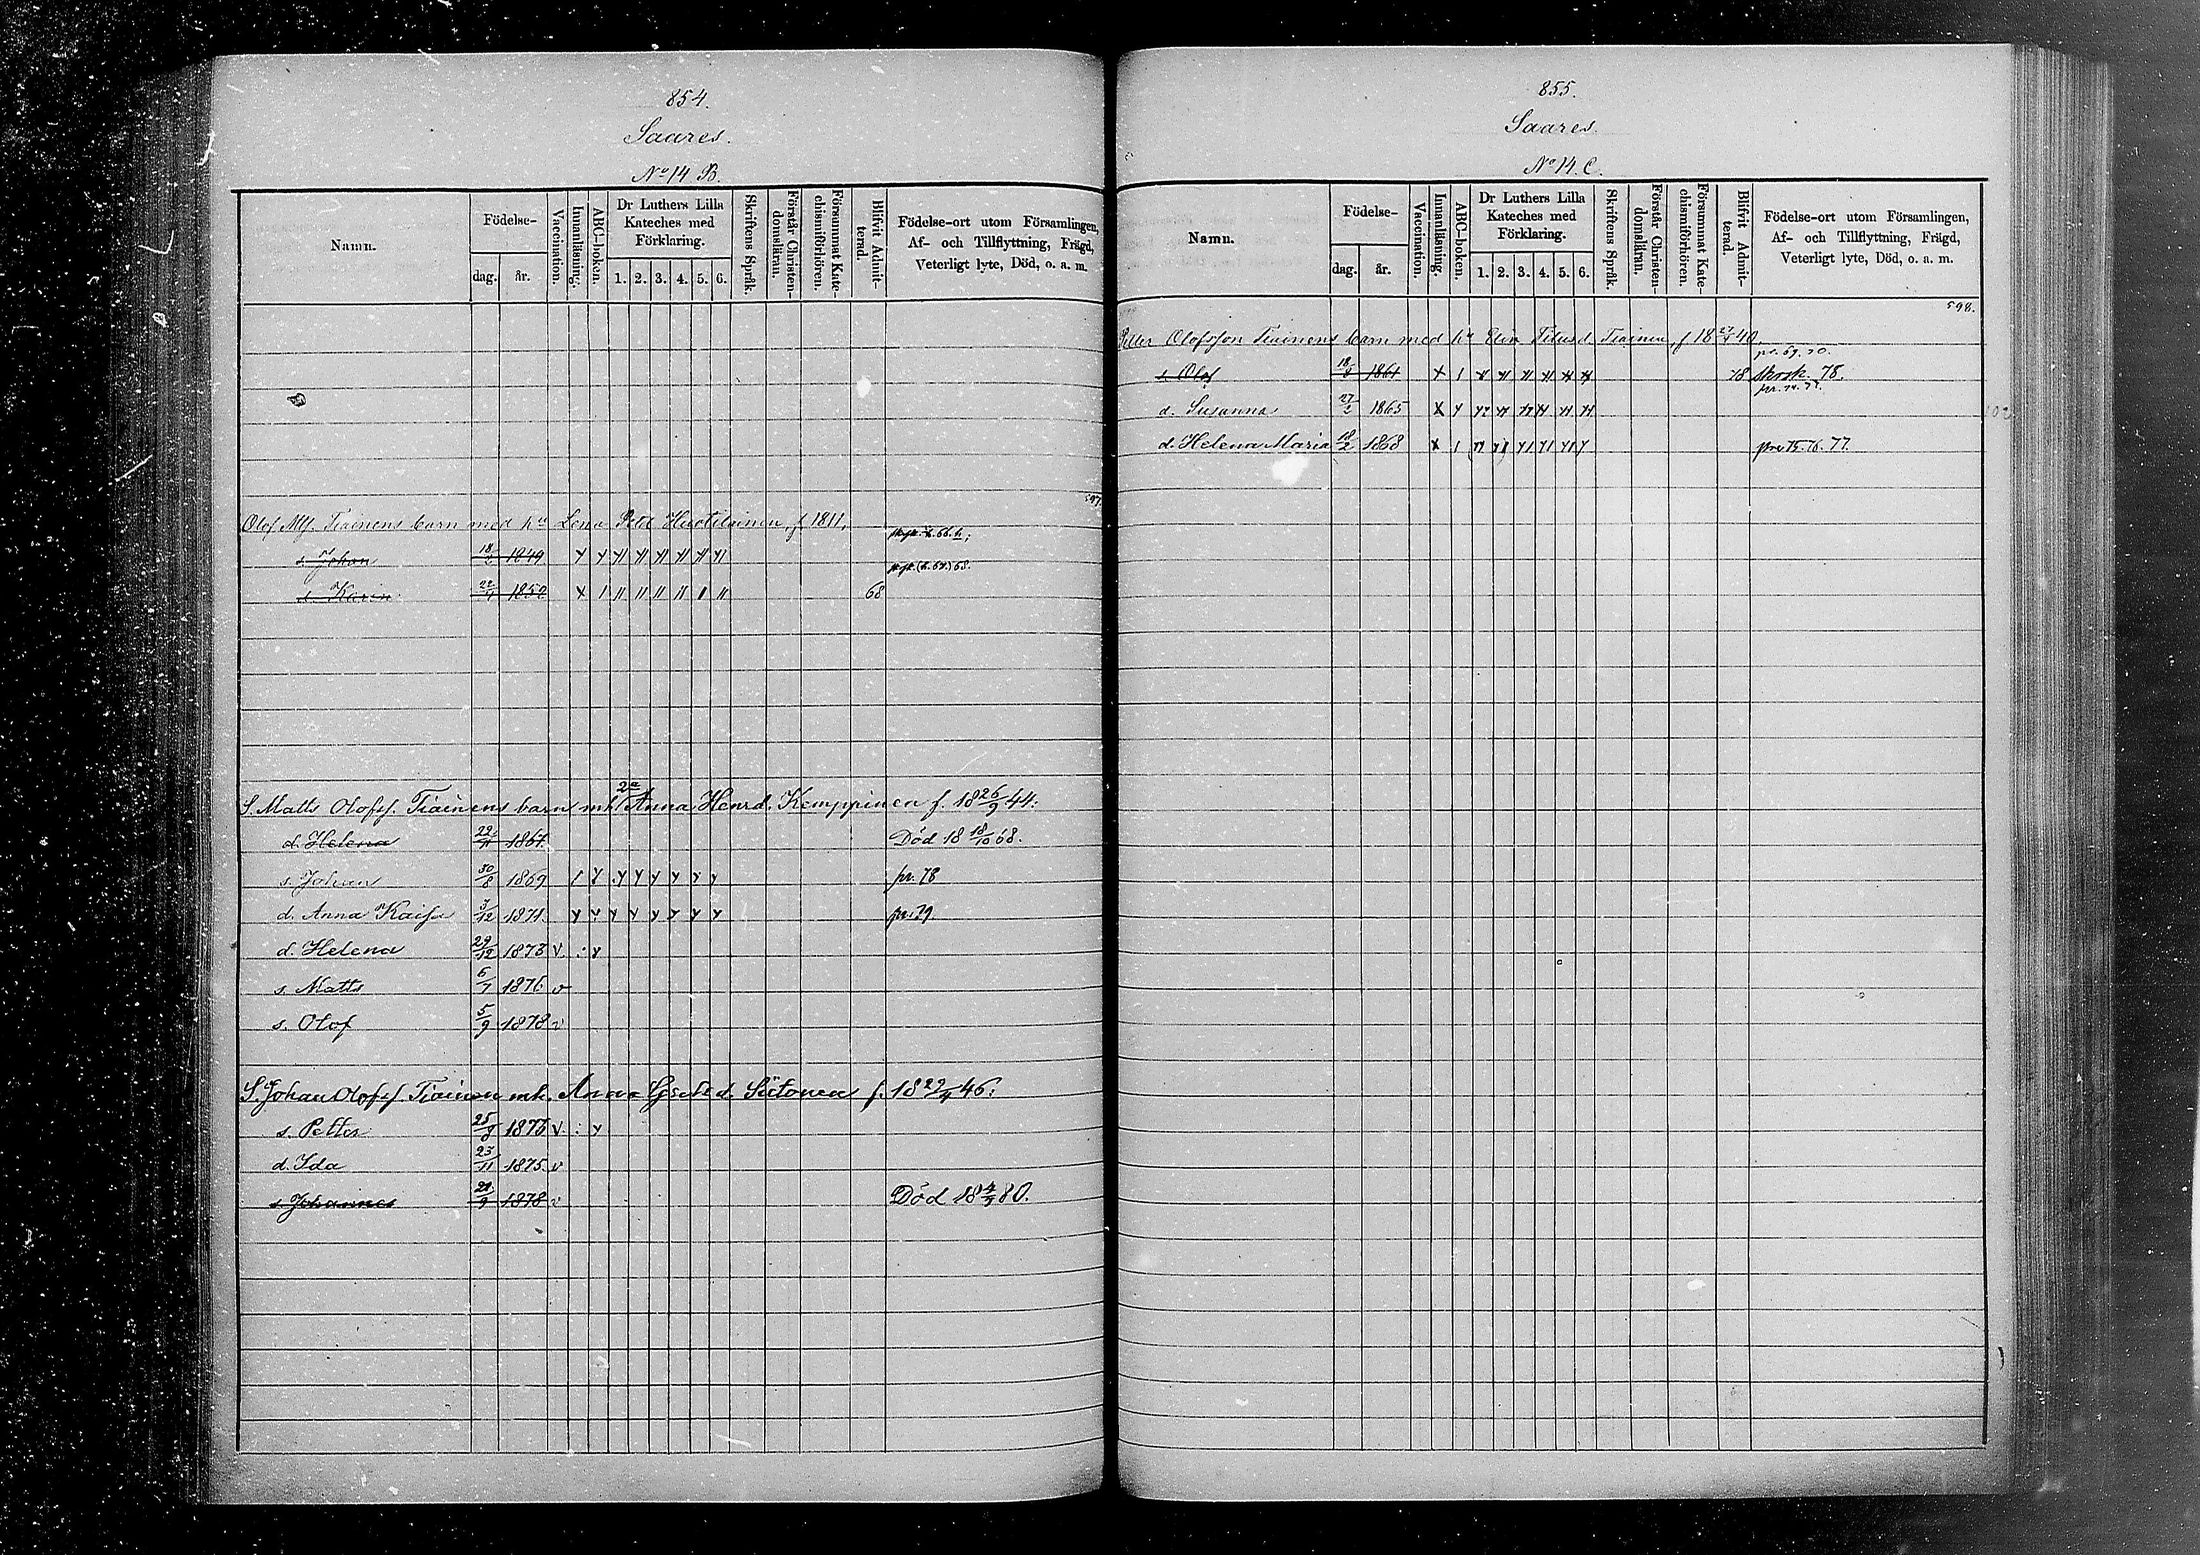 854.
Saares.
No 14 B.
Namn. Födelse- dag. år. Vaccination. Innanläsning. ABC-boken. Dr Luthers Lilla Kateches med Förklaring. 1. 2. 3. 4. 5. 6. Skriftens Språk. Förstår Christendomsläran. Försummat Katechismiförhören. Blifvit Admitterad. Födelse-ort utom Församlingen, Af- och Tillflyttning, Frägd, Veterligt lyte, Död, o. a. m.
597.
Olof Mss. Tiainens barn med hu Lena Petd. Huotilainen, f 1811.
s. Johan 18/2 1849
d. Karin 22/4 1852 68
S. Matts Olofss. Tiainens barn mh 2a Anna Henrd. Kemppinen f. 18 26/9 44:
d. Helena 22/11 1867. Död 18 18/10 68.
s. Johan 30/8 1869 pr. 78
d. Anna Kaisa 3/12 1871. pr. 79
d. Helena 29/12 1873 v
s. Matts 6/7 1876 v
s. Olof 5/9 1878 v
S. Johan Olofss Tiainen mh. Anna Gretsd. Siitonen f. 18 29/4 46:
s. Petter 25/8 1873 v.
d. Ida 23/11 1875 v
s. Johannes 21/9 1878 v Död 18 4/4 80.
855.
Saares.
No 14. C.
Namn. Födelse- dag. år. Vaccination. Innanläsning. ABC-boken. Dr Luthers Lilla Kateches med Förklaring. 1. 2. 3. 4. 5. 6. Skriftens Språk. Förstår Christendomsläran. Försummat Katechismiförhören. Blifvit Admitterad. Födelse-ort utom Församlingen, Af- och Tillflyttning, Frägd, Veterligt lyte, Död, o. a. m.
598.
Petter Olofsson Tiainens barn med hu Elin Titusd. Tiainen, f 18 27/4 40.
pr. 69. 70.
s. Olof 18/8 1861 78 Skrsk. 78.
d. Susanna 27/2 1865
d. Helena Maria 18/2 1868 pr 75. 76. 77.